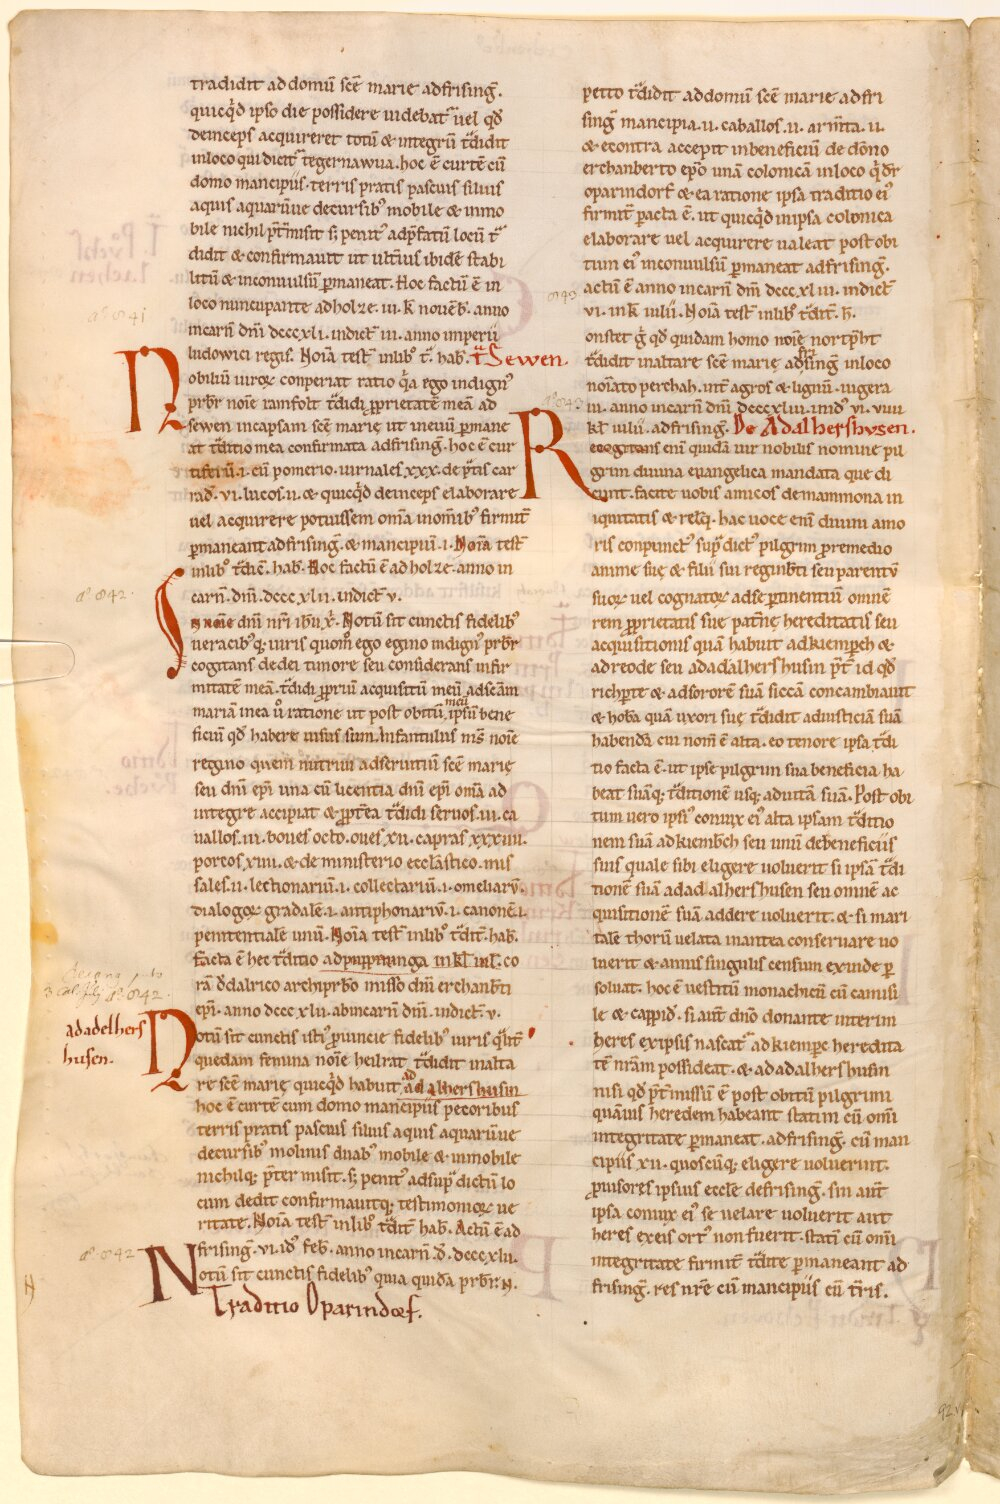 tradidit ad domū scē marie ad frisinḡ.
quicq̇d ipso die possidere uidebat᷑ uel qđ
deinceps acquireret totū & integrū t̃didit
in loco qui dicit᷑ tegernawua. hoc ē curtē cū
domo mancipiis. terris pratis pascuis siluis
aquis aquarūue decursibꝰ mobile & inmo
bile nichil p̄t̄misit sꝫ penitꝰ ad p̄fatū locū t̃
didit & confirmauit ut ultiꝰ ibidē stabi
litū & inconuulsū ꝑmaneat. Hoc factū ē in
loco nuncupante ad holze. iii. k̄ nouēb̄. anno
incarn̄ dm̄i dccc.xli. indict̄ iii. anno imperii
ludowici regis. Noīa test̄ in lib̄ t̃. hab̄. t̃ Sewen.
Nobiliū uiroꝝ conperiat ratio q̇a ego indignꝰ
prb̄r noīe ramfolt t̃didi ꝓprietatē meā ad
sewen in capsam scē marie ut in euū ꝑmane
at t̃ditio mea confirmata ad frisinḡ. hoc ē cur
tiferū.i. cū pomerio. iurnales.xxx. de p̄tis car
rad̄. vi. lucos.ii. & quicq̇d deinceps elaborare
uel acquirere potuissem om̄ia in om̄ibꝰ firmit᷑
ꝑmaneant ad frisinḡ. & mancipiū.i. Noīa test̄
in lib̄ t̃diē. hab̄. Hoc factū ē ad holze. anno in
carn̄. dm̄i. dccc.xlii. indict̄ v.
In noīe dm̄i nr̄i ihū xp̄i. Notū sit cunctis fidelibꝰ
ueracibꝰqꝫ uiris quom̄ ego egino indignꝰ prb̄r
cogitans de dei timore seu considerans infir
mitatē meā. t̃didi ꝓpriū acquisitū meū ad scām
mariā in ea ů ratione ut post obitū meū ipsū bene
ficiū qđ habere uisus sum. Infantulus m̄s noīe
regino quem nutriui ad seruitiū scē marię
seu dn̄i ep̄i una cū licentia dn̄i ep̄i om̄a ad
integre accipiat & ꝓpt̄ea t̃didi seruos.iii. ca
uallos.iii. boues octo. oues xii. capras xxxiiii.
porcos xiiii. & de ministerio ecclāstico. mis
sales.ii. lectionariū.i. collectariū.i. omeliarū.
dialogoꝝ gradalē.i. antiphonariū.i. canonē.i.
penitentialē unū. Noīa test̄ in lib̄ t̃dit̄. hab̄.
facta ē hec t̃ditio ad pupplinga in kl̄ iul̄. co
rā ođalrico archiprb̄ro misso dn̄i erchanb̄ti
ep̄i. anno dccc xlii. ab incarn̄ dm̄i. indict̄ v.
Notū sit cunctis isti᷒ ꝓuincie fidelibꝰ uiris q̇lit᷑
quedam femina noīe heilrat t̃didit in alta
re scē marię quicq̇d habuit ad adalhershusin
hoc ē curtē cum domo mancipiis pecoribus
terris pratis pascuis siluis aquis aquarūue
decursibꝰ molinis duabꝰ mobile & inmobile
nichilqꝫ p̄ter misit. sꝫ penitꝰ ad sup̄dictū lo
cum dedit confirmauitqꝫ testimonioꝝ ue
ritate. Noīa test̄ in lib̄ t̃dit̄ hab̄. Actū ē ad
frisinḡ. vi. idꝰ feb̄. anno incarn̄.đ. dccc.xlii.
Notū sit cunctis fidelibꝰ quia quidā prb̄r. N.
Traditio Oparindorf.
petto t̃didit ad domū scē marie ad fri
sinḡ mancipia.ii. caballos.ii. arm̄ta.ii.
& econtra accepit in beneficiū de dōno
erchanberto ep̄o unā colonicā in loco q̇ dr̄
oparindorf & ea ratione ipsa traditio eiꝰ
firmit᷑ pacta ē. ut quicq̇d in ipsa colonica
elaborare uel acquirere ualeat post obi
tum eiꝰ inconuulsū ꝑmaneat ad frisinḡ.
actū ē anno incarn̄ dm̄i dccc.xl iii. indict̄
vi. in k̄ iulii. Noīa test̄ in lib̄ t̃dit̄. h̄.
onstet ḡ qđ quidam homo noīe nortp̄ht
t̃didit in altare scē marię ad frisinḡ in loco
noīato perchah. int᷑ agros & lignū. iugera
iii. anno incarn̄ dm̄i dccc xliii. ind̄ vi. viiii
kl̄ iulii. ad frisinḡ. De Adalhershusen.
Recogitans eni quidā uir nobilis nomine pil
grim diuina euangelica mandata que di
cunt. facite uobis amicos de mammona in
iquitatis & relq̄. hac uoce eni diuini amo
ris conpunctꝰ sup̄dictꝰ pilgrim pro remedio
anime sue & filii sui reginb̄ti seu parentū
suoꝝ uel cognatoꝝ ad se ꝑtinentiū omnē
rem ꝓprietatis sue paternę hereditatis seu
acquisitionis quā habuit ad kiemperch &
ad reode seu ad adalhershusin p̄t᷑ id qđ
richꝑte & ad sororē suā siccā concambiauit
& hoba quā uxori suę t̃didit ad iusticiā suā
habendā cui nom̄ ē alta. eo tenore ipsa t̃di
tio facta ē. ut ipse pilgrim sua beneficia ha
beat suāqꝫ t̃ditionē usqꝫ ad uitā suā. Post obi
tum uero ipsiꝰ coniux eiꝰ alta ipsam t̃ditio
nem suā ad kiemb̄ch seu unū de beneficiis
suis quale sibi eligere uoluerit si ipsā t̃di
tionē suā ad adalhershusen seu omnē ac
quisitionē suā addere uoluerit. & si mari
talē thorū uelata in antea conseruare uo
luerit & annis singulis censum exinde ꝑ
soluat. hoc ē uestitū monachicū cū camisi
le & cappiđ. si aut̄ dn̄o donante interim
heres ex ipsis nascat᷑ ad kiemperc heredita
tē nrām possideat. & ad adalhershusin
nisi qđ p̄t̄missū ē post obitū pilgrimi
quāuis heredem habeant statim cū om̄i
integritate ꝑmaneat. ad frisinḡ. cū man
cipiis xii. quoscūqꝫ eligere uoluerint.
ꝓuisores ipsius eccłe de frisinḡ. sin aut̄
ipsa coniux eiꝰ se uelare uoluerit aut
heres ex eis ortꝰ non fuerit. statī cū om̄i
integritate firmit᷑ t̃dite ꝑmaneant ad
frisinḡ. res nr̄e cū mancipiis cū t̃ris.
aº 841
aº 842.
3 Cal. Jlj aº 842.
adadelhers
husen.
aº 842
843
aº 843
92